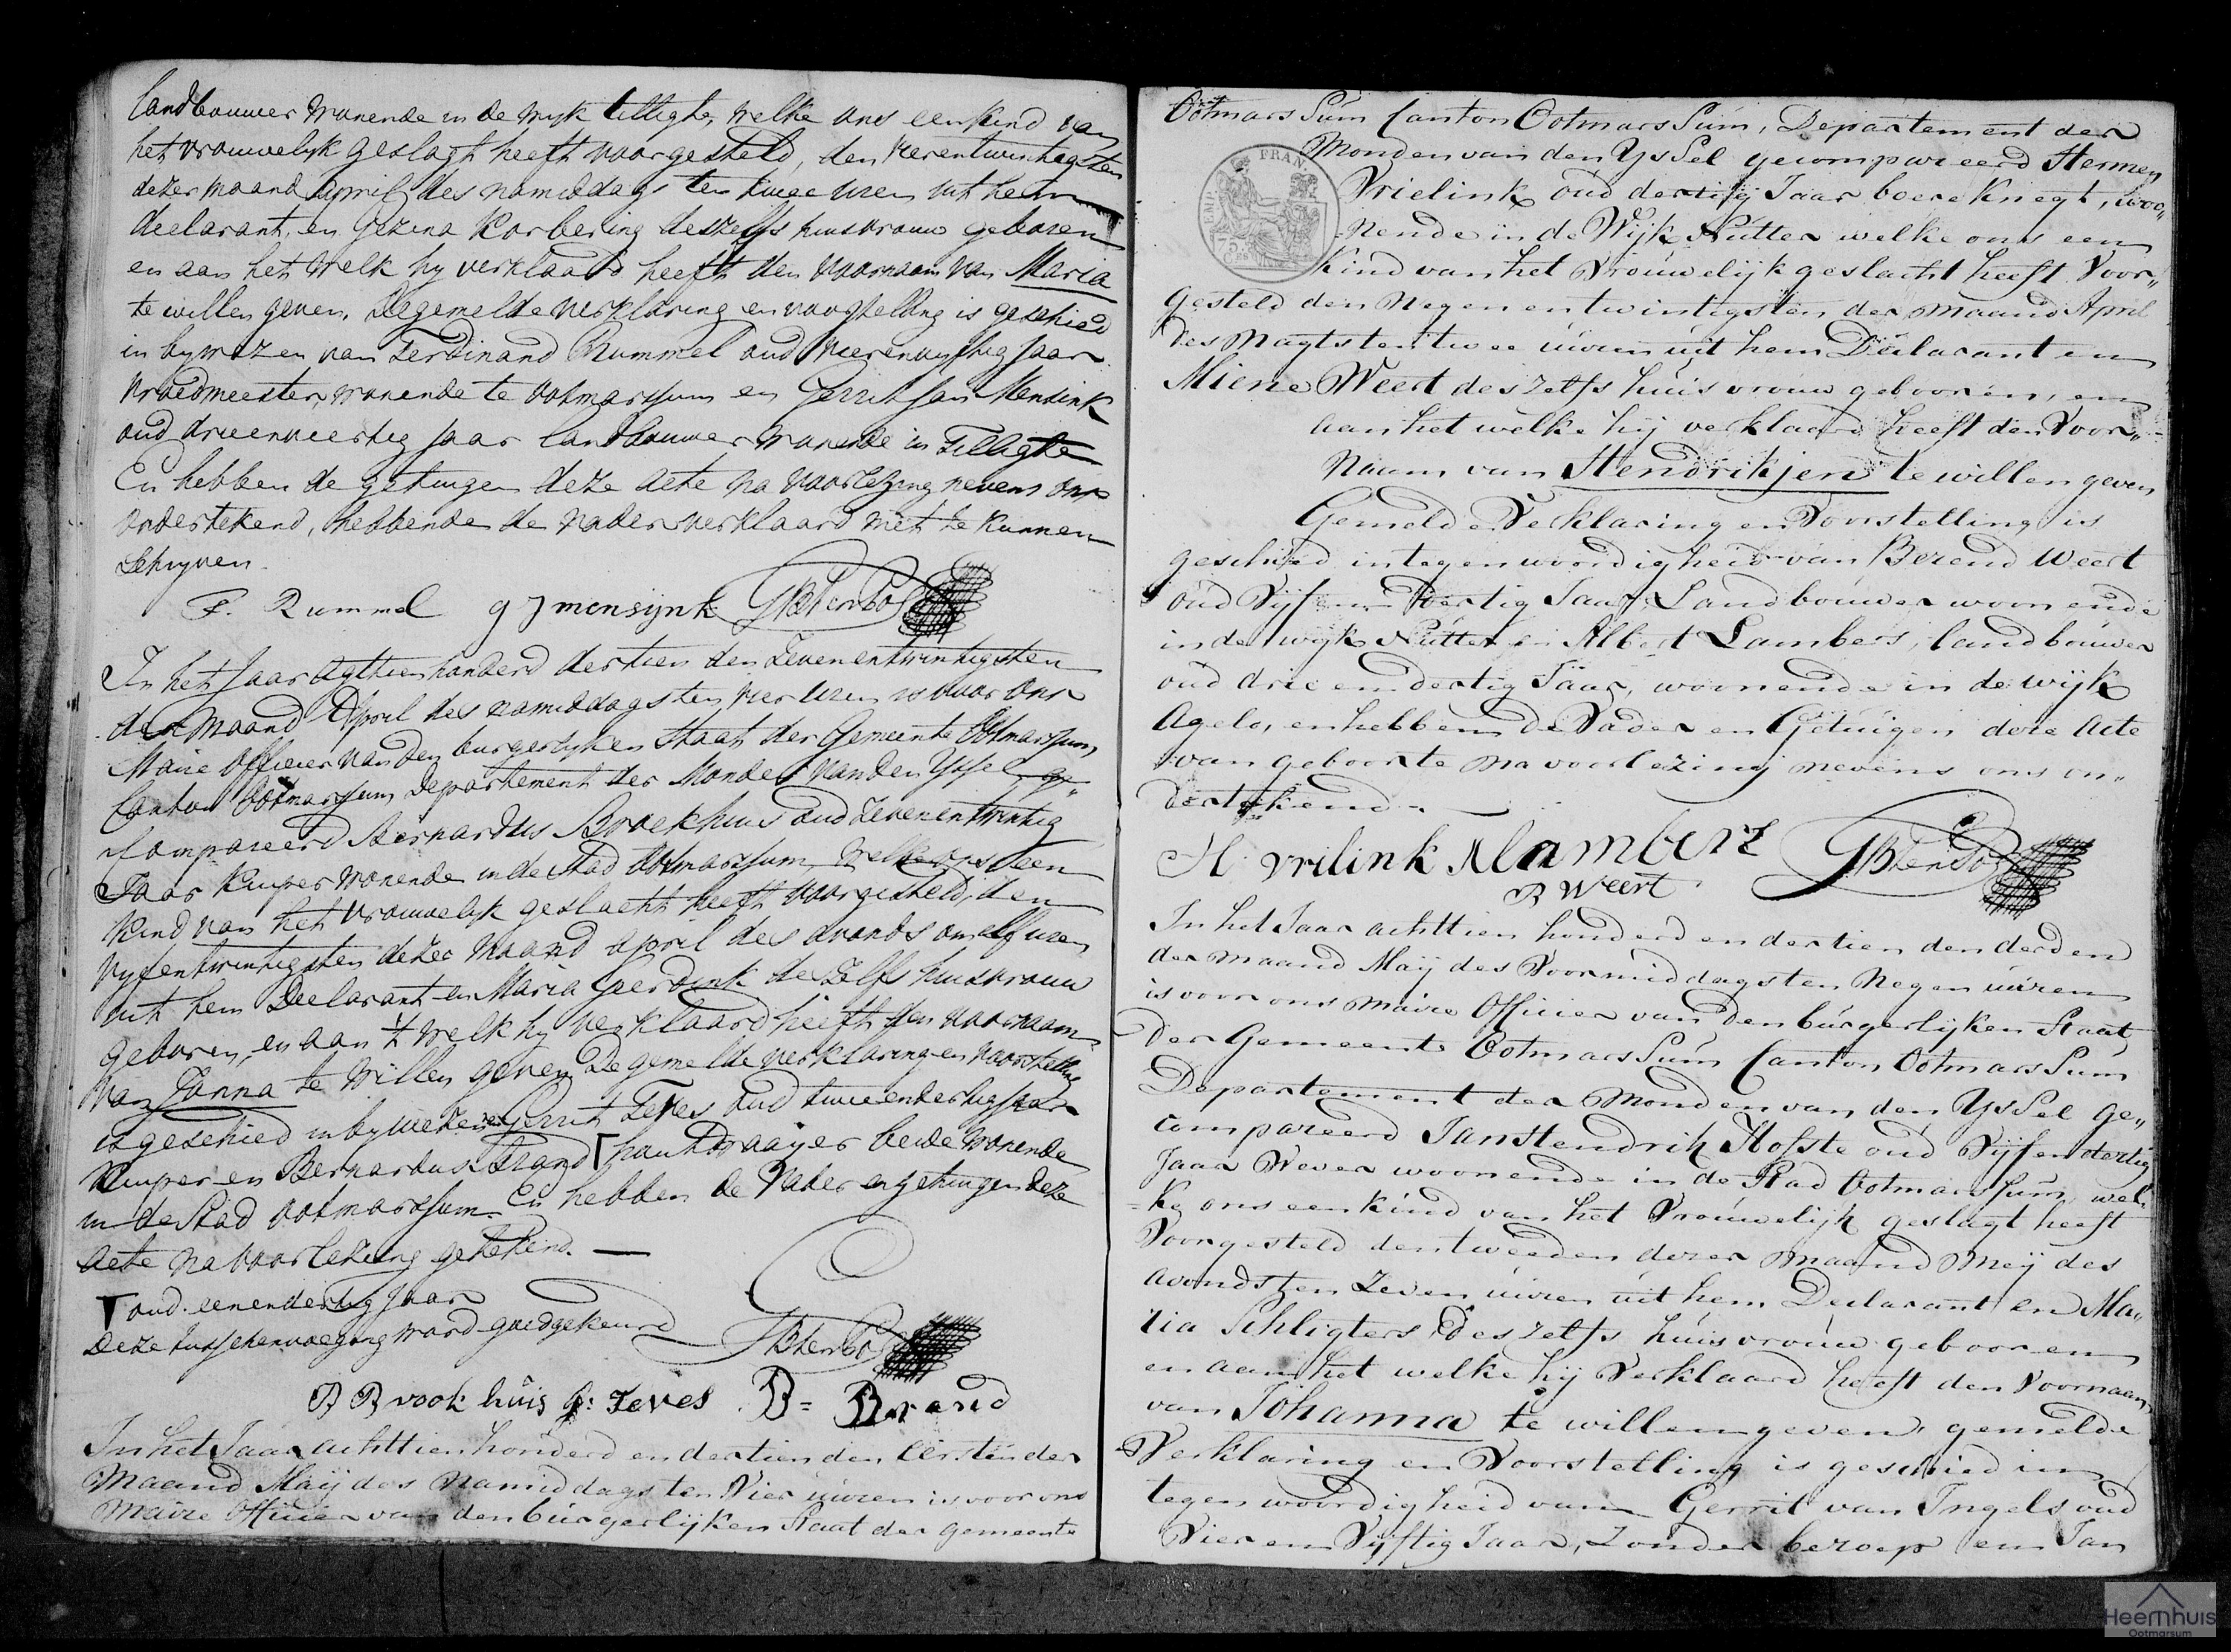 landbouwer wonende in de wyk tilligte, welke ons een kind van
het vrouwelyk geslagt heeft voorgesteld, den vierentwintigsten
dezer maand april des namiddags ten twee uren uit hem
declarant en Gezina Korbering deszelfs huisvrouw geboren
en aan het welk hy verklaard heeft den voornaam van Maria
te willen geven. De gemelde verklaring en voorstelling is geschied
in bywezen van Ferdinand Rummel oud vierenvyftig jaar
vroedmeester, wonende te ootmarssum en Gerrit Jan Mensink
oud drieenveertig jaar landbouwer wonende in Tilligte
En hebben de getuigen deze acte na voorlezing nevens ons
ondertekend, hebbende de vader verklaard niet te kunnen
schryven.
F. Rummel g J mensijnk
In het Jaar agttienhonderd dertien den Zevenentwintigsten
der maand April des namiddags ten vier uren is voor ons
Maire officier van den burgerlyken staat der Gemeente Ootmarssum,
Canton Ootmarssum, Departement der Monden van den Yssel ge„
compareerd Bernardus Broekhuis oud zevenentwintig
Jaar kuiper wonende in de stad Ootmarssum, welke ons een
kind van het vrouwelyk geslacht heeft voorgesteld, den
vyfentwintigsten dezer maand april des avonds om elf uren
uit hem Declarant en Maria Geerdink deszelfs huisvrouw
geboren, en aan 't welk hy verklaard heeft den voornaam
van Janna te willen geven De gemelde verklaring en voorstelling
is geschied in bywezen van Gerrit Zeves oud tweeendertig jaar
kuiper en Bernardus Brand houtdraayer beide wonende
in de Stad Ootmarssum. En hebben de vader en getuigen deze
acte na voorlezing getekend. —
oud eenendertig jaar
Deze tusschenvoeging word goedgekeurd
B Broekhuis G: Zeves B = Brand
In het Jaar achttien honderd en dertien den Eersten der
Maand Maij des Namiddags ten Vier uuren is voor ons
Maire Officier van den burgerlijken Staat der gemeente
OotmarsSum Canton OotmarsSum, Departement der
Monden van den YsSel gecompareerd Hermen
Vrielink oud dertig Jaar boere Knegt, woo„
nende in de Wijk Nutter welke ons een
Kind van het Vrouwelijk geslacht heeft Voor„
gesteld den Negen en twintigsten der Maand April
des Nagts ten twee uuren uit hem Declarant en
Miene Weert deszelfs huis vrouw gebooren, en
aan het welke hij verklaard heeft den Voor„
Naam van Hendrikjen te willen geven
Gemelde Verklaring en Voorstelling is
geschied in tegenwoordigheid van Berend Weert
oud Vijf en Jaar Landbouwer woonende
in de wijk Nutter en Albert Lambers, landbouwer
oud drie en dertig Jaar, woonende in de wijk
Agelo, en hebben de Vader en Getuigen deze Acte
van geboorte na voorlezing nevens ons on„
dertekend.
H. vrilink A lamberz
B Weert
In het Jaar achttien honderd en dertien den derden
der maand Maij des Voormiddags ten Negen uuren
is voor ons Maire Officier van den burgerlijken Staat
der Gemeente OotmarsSum Canton OotmarsSum
Departement der Monden van den YsSel Ge„
compareerd Jan Hendrik Hofste oud Vijf en dertig
Jaar Wever woonende in de Stad Ootmarssum, wel„
ke ons een Kind van het Vrouwelijk geslagt heeft
Voorgesteld den tweeden dezer Maand Meij des
avonds ten Zeven uuren uit hem Declarant en Ma„
ria Schligters deszelfs huisvrouw gebooren
en aan het welke hij Verklaard heeft den Voornaam
van Johanna te willen geven, gemelde
Verklaring en Voorstelling is geschied in
tegenwoordigheid van Gerrit van Ingels oud
Vier en Vijftig Jaar, Zonder beroep en Jan
Heemhuis
Ootmarsum